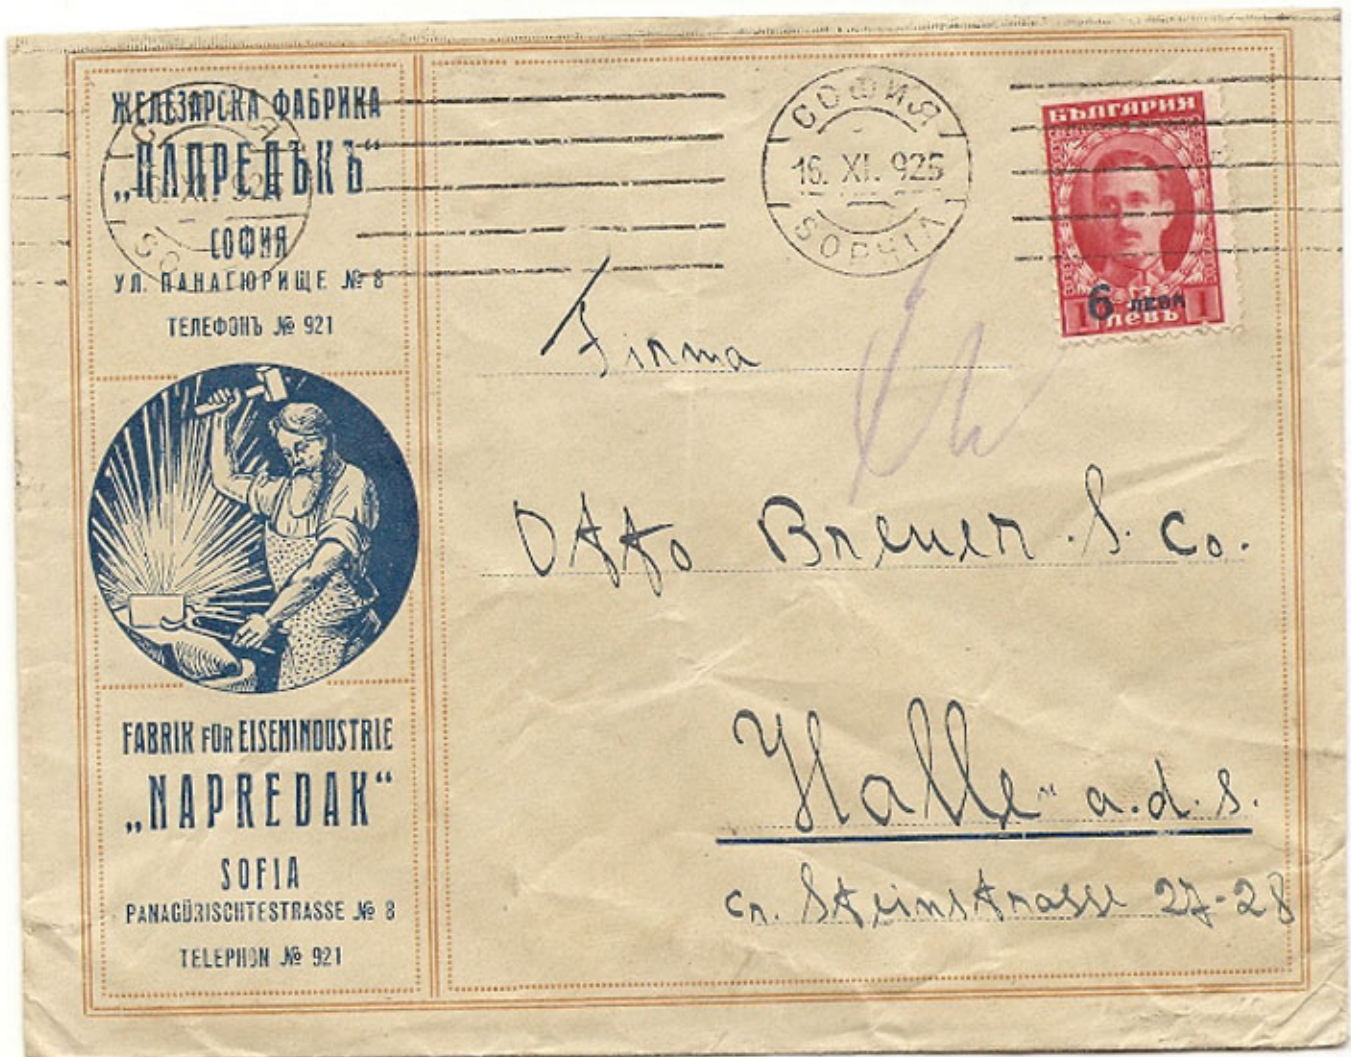 ЖЕЛЕЗАРСКА ФАБРИКА
„НАПРЕДЪКЪ“
СОФИЯ
УЛ. ПАНАГЮРИЩЕ № 8
ТЕЛЕФОНЪ № 921
FABRIK FÜR EISENINDUSTRIE
„NAPREDAK“
SOFIA
PANAGÜRISCHTESTRASSE № 8
TELEPHON № 921
СОФИЯ
16. XI. 925
SOPHIA
БЪЛГАРИЯ
6 ЛЕВА
1 ЛЕВЪ 1
Firma
Otto Breuer. S. Co.
Halle a.d.s.
Gr. Steinstrasse 27-28